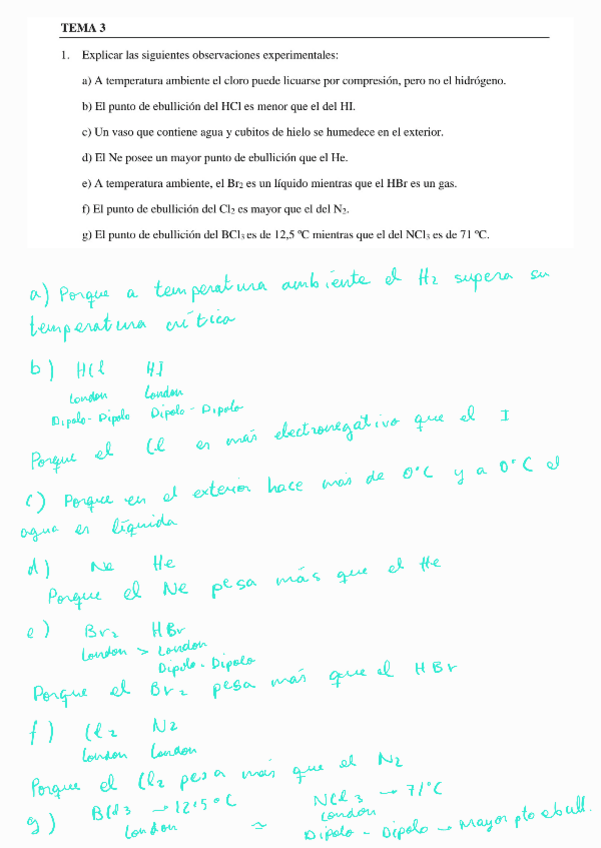 TEMA 3
1. Explicar las siguientes observaciones experimentales:
a) A temperatura ambiente el cloro puede licuarse por compresión, pero no el hidrógeno.
b) El punto de ebullición del HCl es menor que el del HI.
c) Un vaso que contiene agua y cubitos de hielo se humedece en el exterior.
d) El Ne posee un mayor punto de ebullición que el He.
e) A temperatura ambiente, el Br₂ es un líquido mientras que el HBr es un gas.
f) El punto de ebullición del Cl₂ es mayor que el del N₂.
g) El punto de ebullición del BCl₃ es de 12,5 ºC mientras que el del NCl₃ es de 71 ºC.
a) Porque a temperatura ambiente el H₂ supera su
temperatura crítica
b) HCl HI
London London
Dipolo-Dipolo Dipolo-Dipolo
Porque el Cl es más electronegativo que el I
c) Porque en el exterior hace más de 0ºC y a 0ºC el
agua es líquida
d) Ne He
Porque el Ne pesa más que el He
e) Br₂ HBr
London > London
Dipolo-Dipolo
Porque el Br₂ pesa más que el HBr
f) Cl₂ N₂
London London
Porque el Cl₂ pesa más que el N₂
g) BCl₃ → 12'5ºC NCl₃ → 71ºC
London ≈ London
Dipolo-Dipolo → Mayor pto ebull.